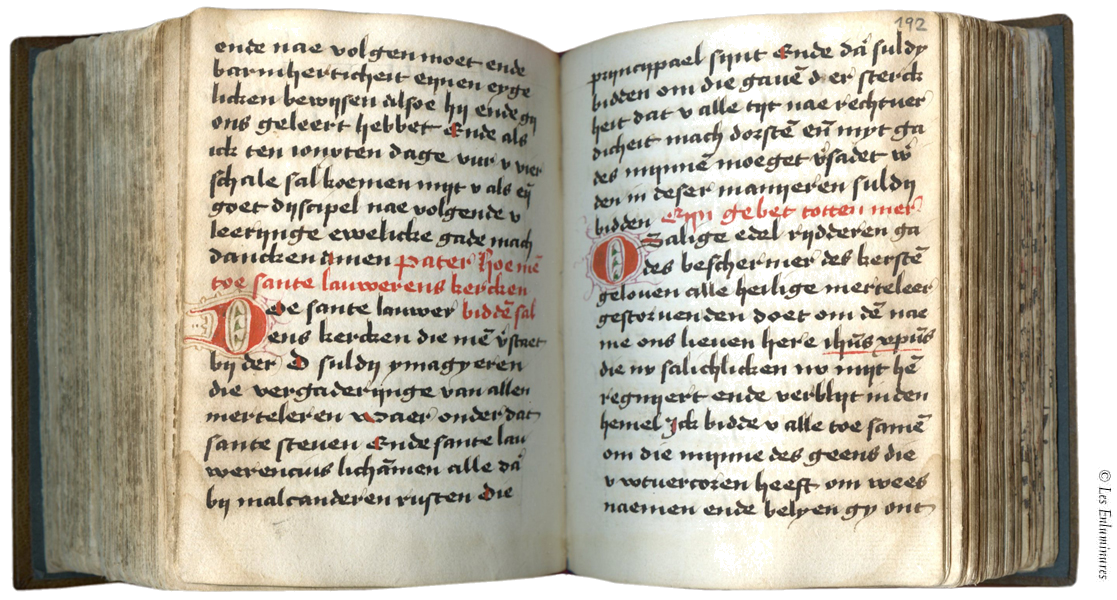 ende nae volgen moet ende
barmherticheit eynen eyge
licken bewijsen alsoe hy ende gij
ons geleert hebbet Ende als
ick ten ionxten dage vur v vier
schale sal koemen mijt v als eȳ
goet dijscipel nae volgende v
leerijnge ewelicke gade mach
dancken Amen Pater Hoe mē
toe sante lauwerens kercken
Dese sante lauwer biddē sal
ens kercken die mē v̄staet
bij der D suldij ymagyeren
die vergaderijnge van allen
merteleren waer onder dat
sante steuen Ende sante lau
werencius lichāmen alle dā
bij malcanderen rusten Die
192
prijncijpael sijnt Ende dā suldy
bidden om die gauē der sterck
heit dat v alle tijt nae rechtuer
dicheit mach dorstē en̄ myt ga
des mijnnē moeget v̄sadet w̄
den in deser manijeren suldij
bidden gebet totten mer
O salige edel rijdderen ga
des beschermer des kerstē
gelouen alle heilige merteleer
gestoruen den doet om dē nae
me ons lieuen here ihūs xpūs
die nv salichlicken nv mijt hē
regnijert ende verblijt in den
hemel Ick bidde v alle toe samē
om die mijnne des geens die
v wtuercoren heeft om wees
naemen ende belyen gy ont
© Les Enluminures